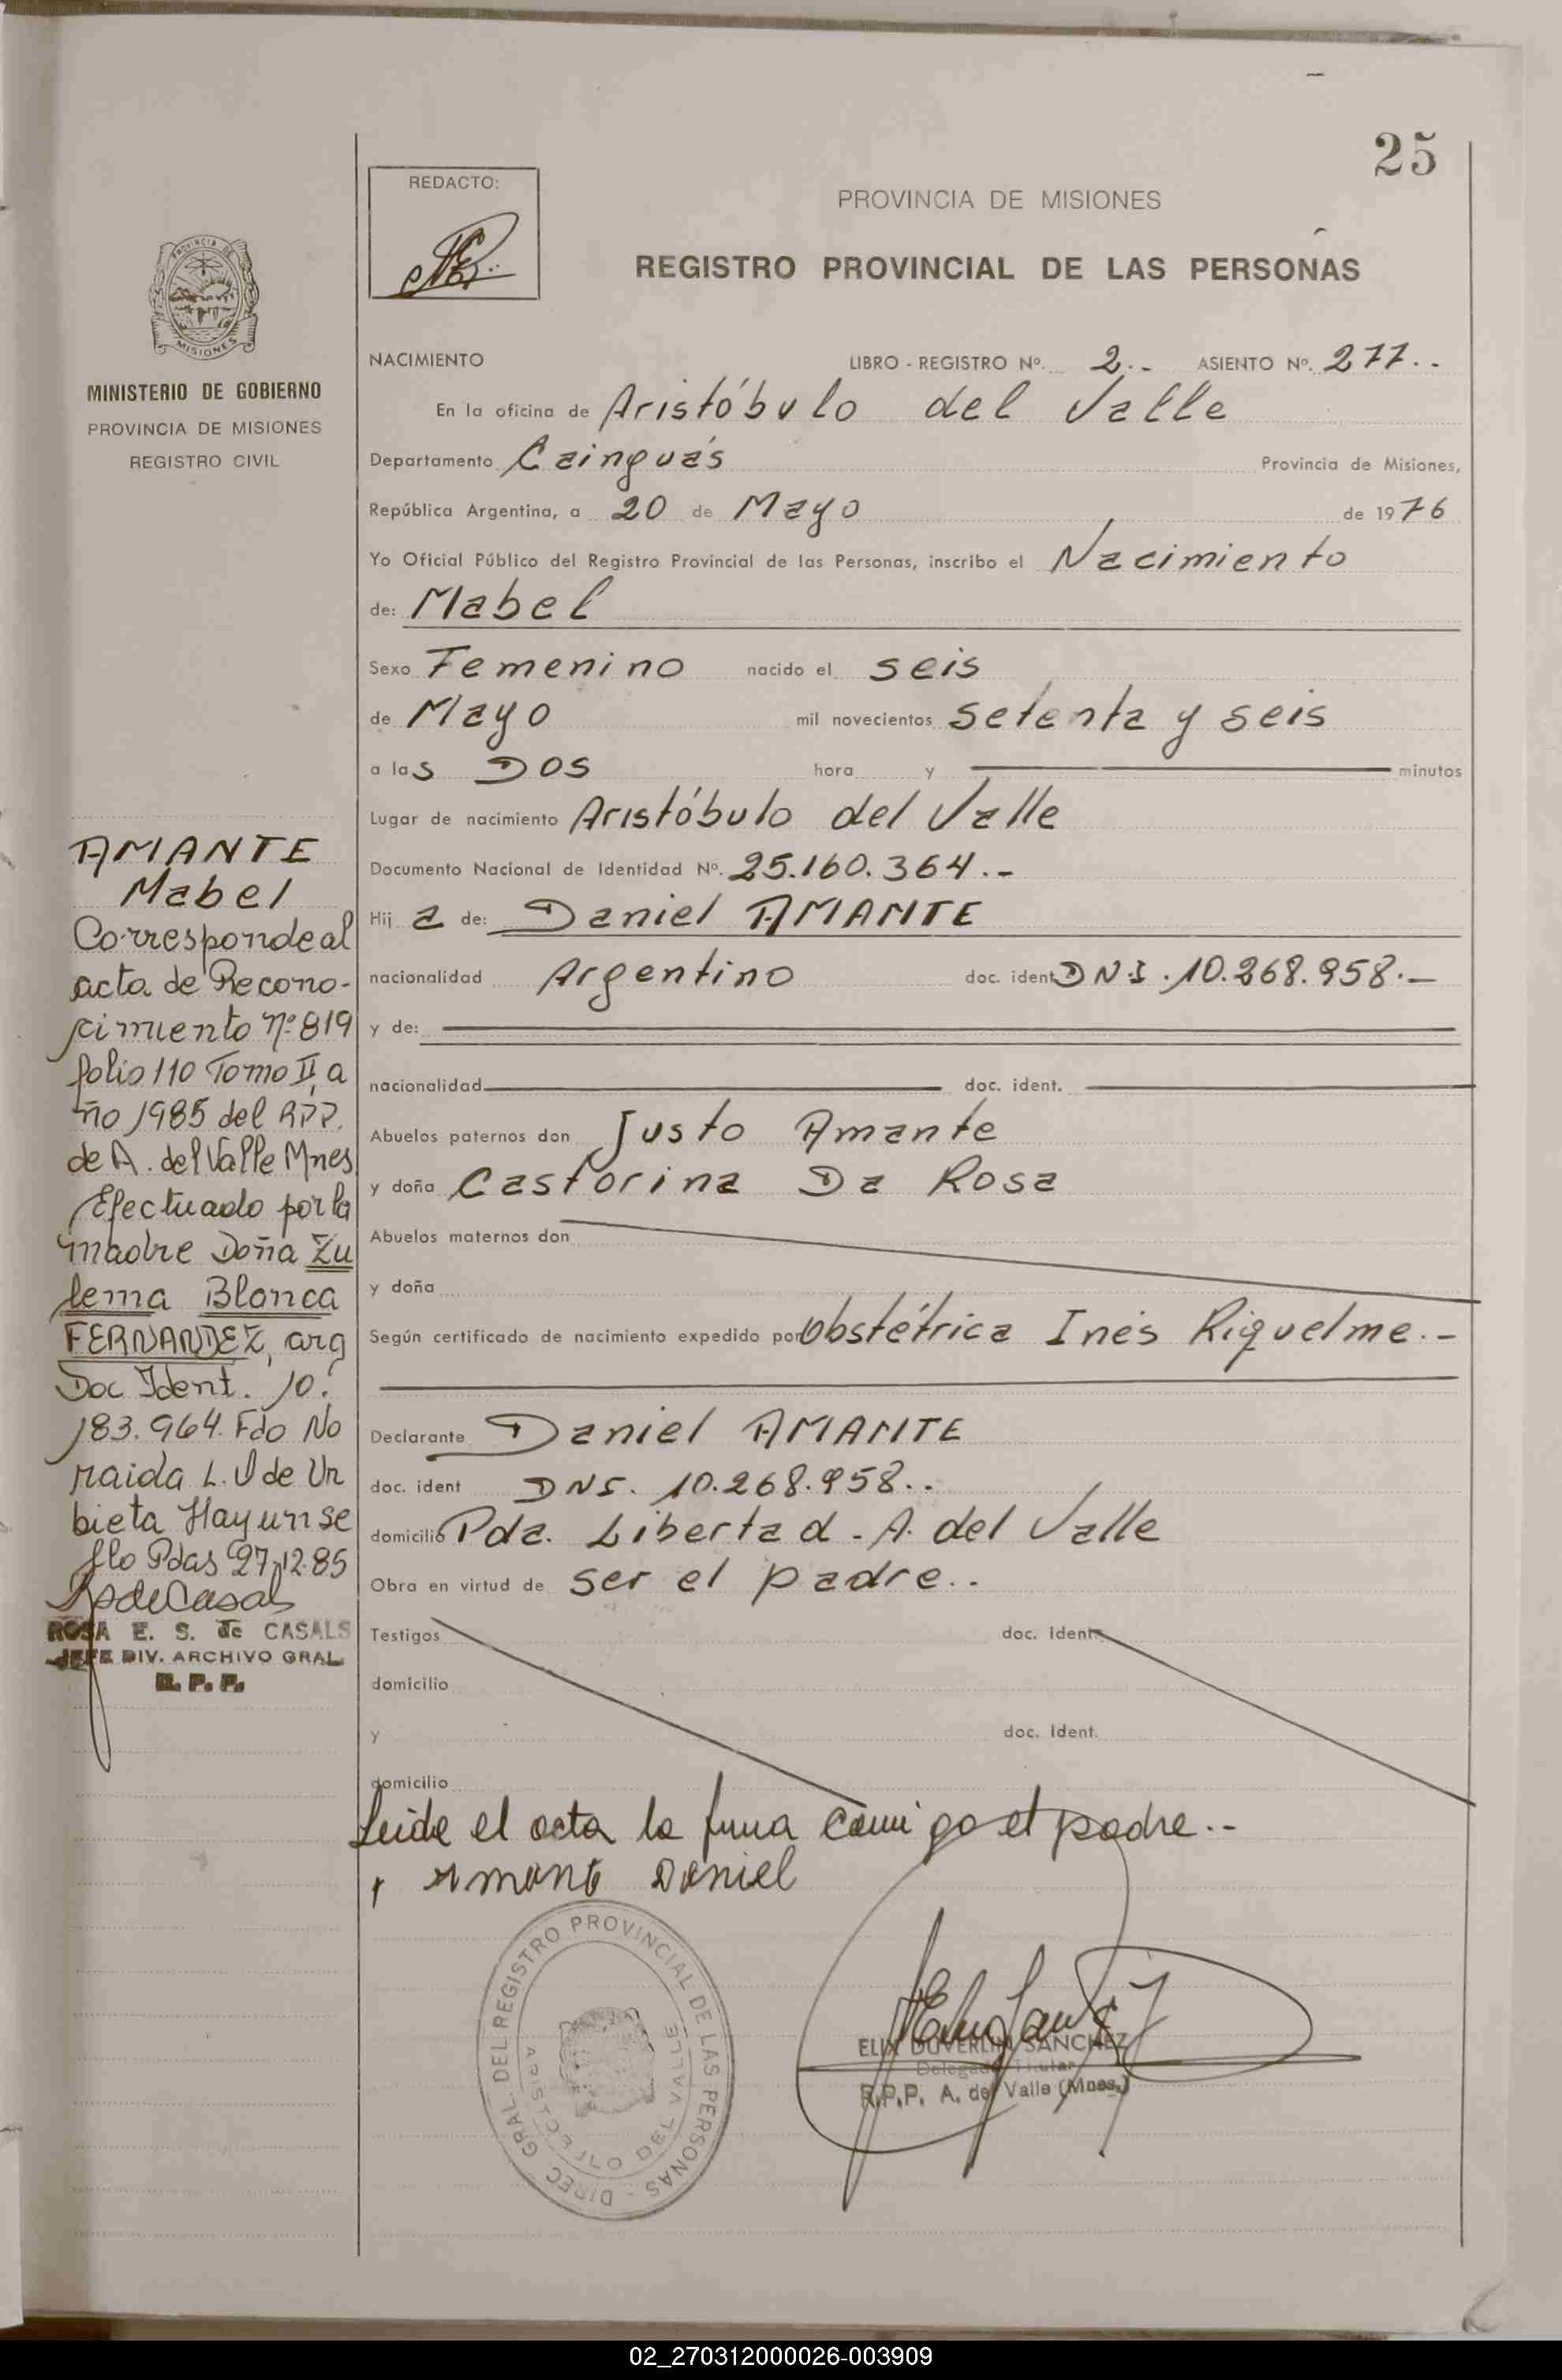 25
REDACTO:
PROVINCIA DE MISIONES
REGISTRO PROVINCIAL DE LAS PERSONAS
PROVINCIA DE
MISIONES
MINISTERIO DE GOBIERNO
PROVINCIA DE MISIONES
REGISTRO CIVIL
NACIMIENTO LIBRO - REGISTRO Nº. 2.. ASIENTO Nº. 277..
En la oficina de Aristóbulo del Valle
Departamento Cainguás Provincia de Misiones,
República Argentina, a 20 de Mayo de 1976
Yo Oficial Público del Registro Provincial de las Personas, inscribo el Nacimiento
de: Mabel
Sexo Femenino nacido el seis
de Mayo mil novecientos setenta y seis
a las DOS hora y minutos
Lugar de nacimiento Aristóbulo del Valle
Documento Nacional de Identidad Nº. 25.160.364.-
Hija de: Daniel AMANTE
nacionalidad Argentino doc. ident DNI. 10.268.958.-
y de:
nacionalidad doc. ident.
Abuelos paternos don Justo Amante
y doña Castorina Da Rosa
Abuelos maternos don
y doña
Según certificado de nacimiento expedido por obstétrica Inés Riquelme.-
Declarante Daniel AMANTE
doc. ident DNI. 10.268.958..
domicilio Pda. Libertad - A. del Valle
Obra en virtud de ser el padre..
Testigos doc. ident.
domicilio
y doc. Ident.
domicilio
Leida el acta la firma conmigo el padre..
Amante Daniel
AMANTE
Mabel
Corresponde al
acta de Recono-
cimiento nº 819
folio 110 Tomo II, a
ño 1985 del RPP.
de A. del Valle Mnes
Efectuado por la
madre Doña Zu
lema Blanca
FERNANDEZ, arg
Doc Ident. 10.
183.964. Fdo No
raida L. V de Ur
bieta Hay un se
llo Pdas 27.12.85
ROSA E. S. de CASALS
JEFE DIV. ARCHIVO GRAL.
R. P. P.
DIREC. GRAL. DEL REGISTRO PROVINCIAL DE LAS PERSONAS -
ARISTOBULO DEL VALLE
ELIX DUVERLIN SANCHEZ
Delegado Titular
R.P.P. A. del Valle (Mnes.)
02_270312000026-003909